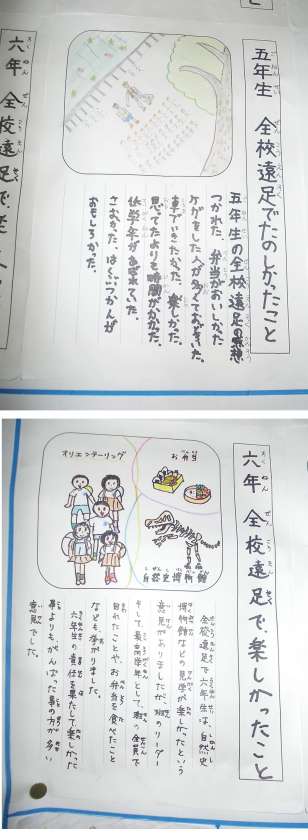 五年生 全校遠足でたのしかったこと
五年生の全校遠足の感想
つかれた。弁当がおいしかった
ケガをした人が多くておどろいた。
車でいきたかった。楽しかった。
思ってたよりも時間がかかった。
低学年があばれていた。
さむかった。はくぶつかんが
おもしろかった。
六年 全校遠足で
六年 全校遠足で楽しかったこと
お弁当
オリエンテーリング
自然史博物館
全校遠足で六年生は、自然史
博物館などの見学が楽しかったという
意見がありましたが、班のリーダー
そして最高学年として、班の全員で
回れたことや、お弁当を食べたこと
なども挙がりました。
六年生の責任を果たして、楽しかった
事よりもがんばった事の方が多い
意見でした。